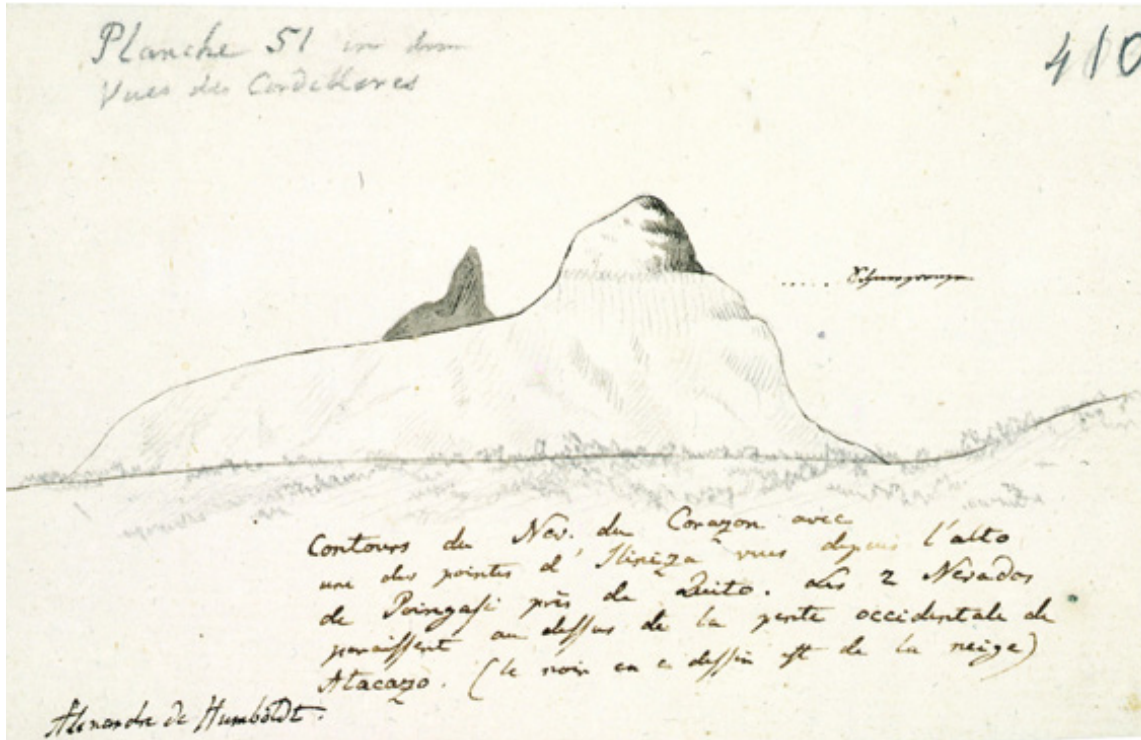 Planche 51 in dem
Vues des Cordilleres
410
Schneegrenze
Contours du Nev. du Corazon avec
une des pointes d'Iliniza vues depuis l'alto
de Poingasi près de Quito. Les 2 Nevados
paraissent au dessus de la pente occidentale de
Atacazo. (le noir en ce dessin est de la neige)
Alexandre de Humboldt.